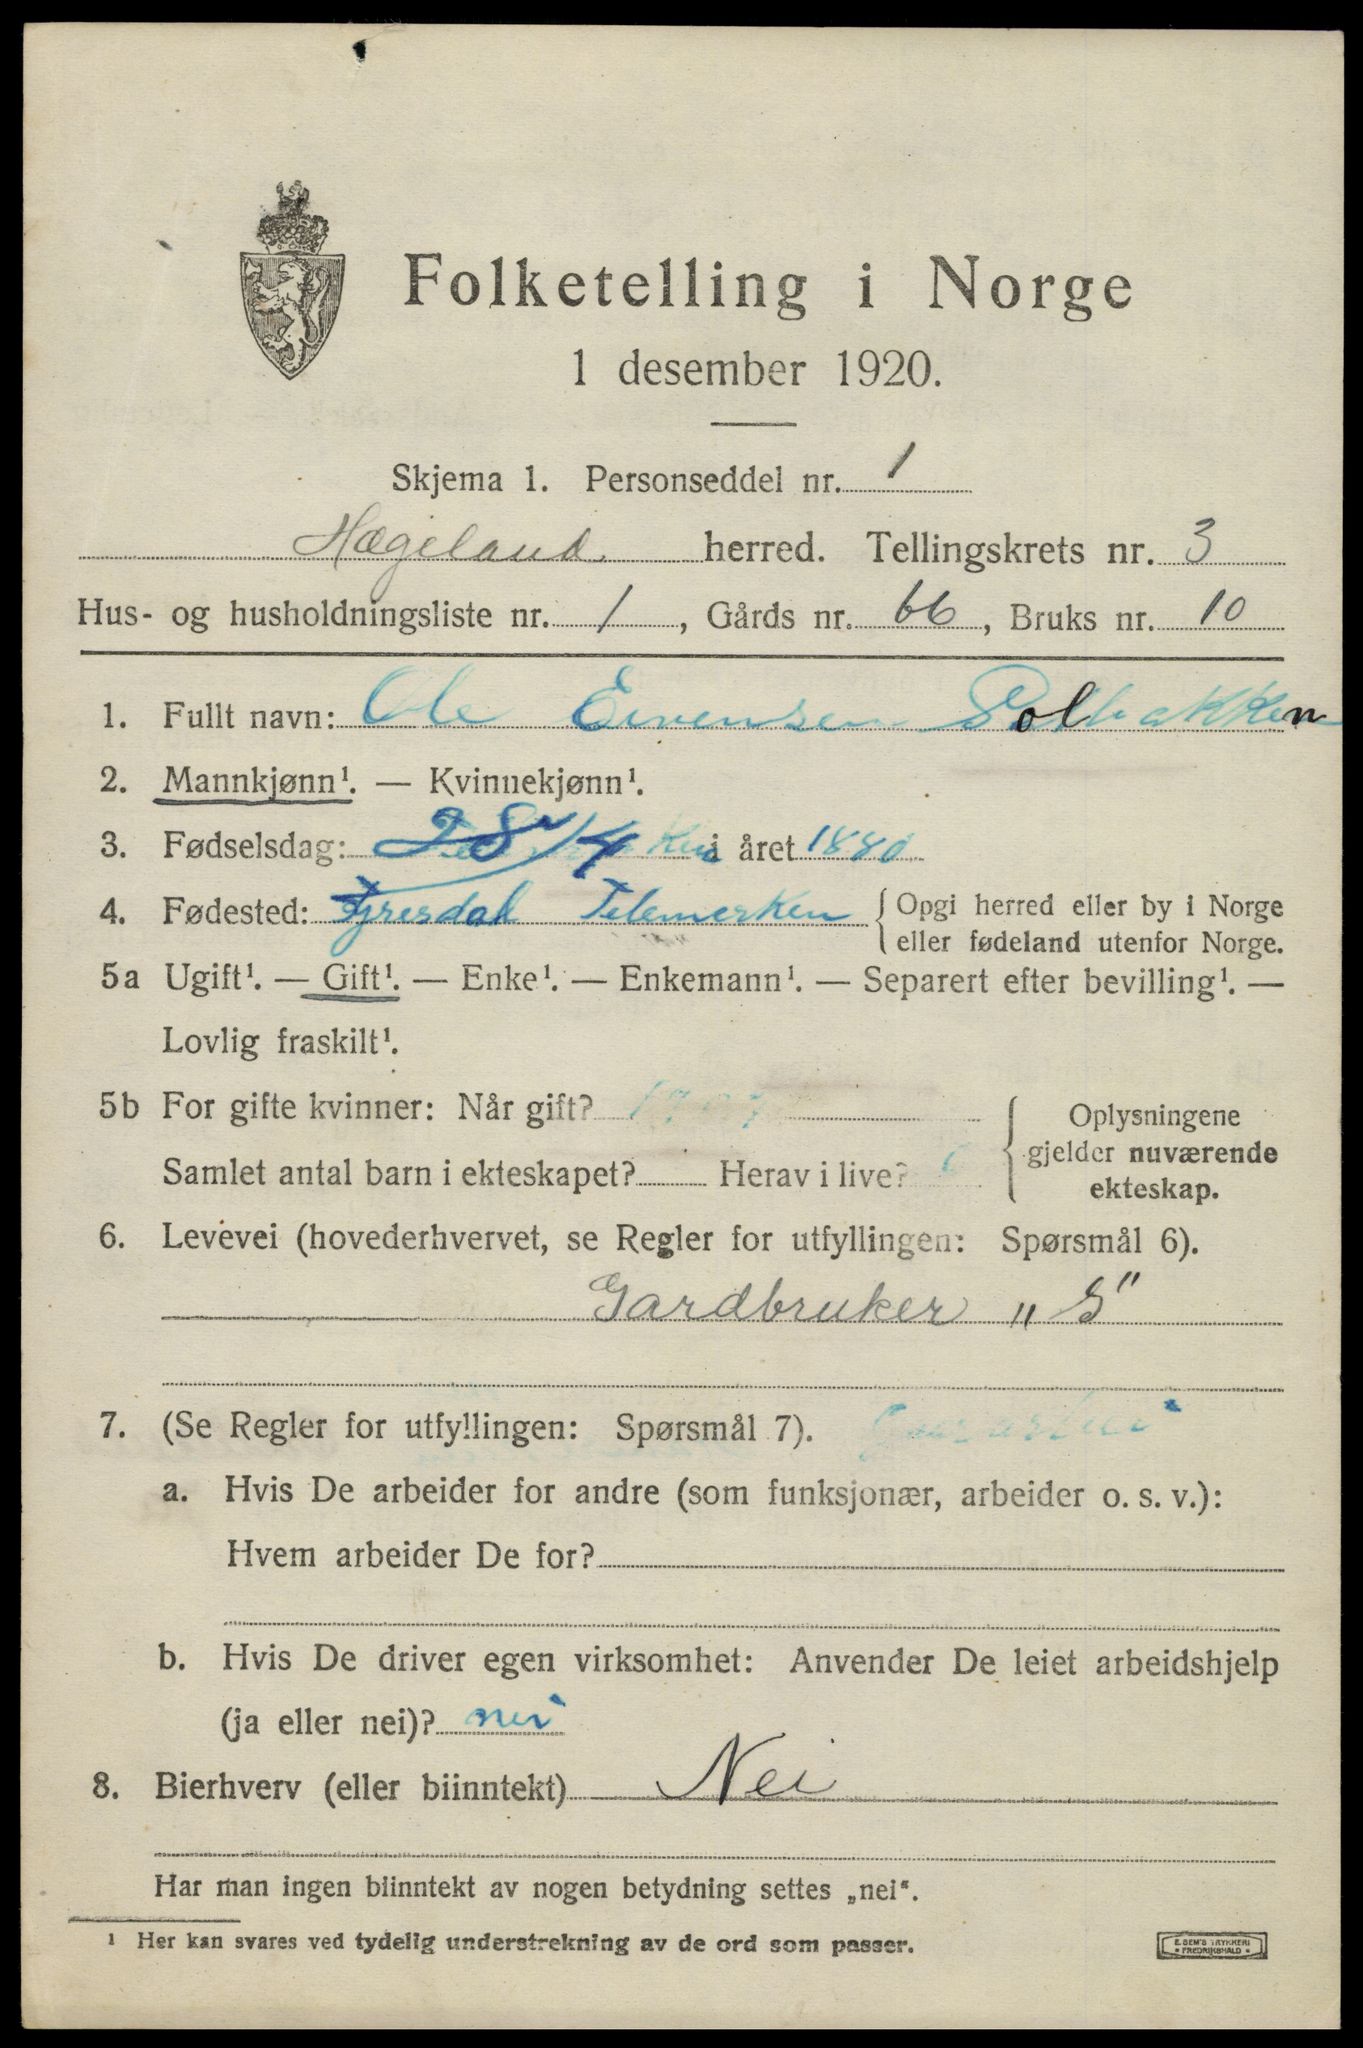 Folketelling i Norge
1 desember 1920.
Skjema 1. Personseddel nr. 1
Hægeland herred. Tellingskrets nr. 3
Hus- og husholdningsliste nr. 1, Gårds nr. 66, Bruks nr. 10
1. Fullt navn: Ole Evensen Solbakken
2. Mannkjønn¹. — Kvinnekjønn¹.
3. Fødselsdag: 28/4 i året 1880
4. Fødested: Fyresdal Telemarken { Opgi herred eller by i Norge
eller fødeland utenfor Norge.
5a Ugift¹. — Gift¹. — Enke¹. — Enkemann¹. — Separert efter bevilling¹. —
Lovlig fraskilt¹.
5b For gifte kvinner: Når gift? 1907
Samlet antal barn i ekteskapet? Herav i live?
{ Oplysningene
gjelder nuværende
ekteskap.
6. Levevei (hovederhvervet, se Regler for utfyllingen: Spørsmål 6).
Gardbruker „S"
7. (Se Regler for utfyllingen: Spørsmål 7).
a. Hvis De arbeider for andre (som funksjonær, arbeider o. s. v.):
Hvem arbeider De for?
b. Hvis De driver egen virksomhet: Anvender De leiet arbeidshjelp
(ja eller nei)? nei
8. Bierhverv (eller biinntekt) Nei
Har man ingen biinntekt av nogen betydning settes „nei".
¹ Her kan svares ved tydelig understrekning av de ord som passer.
E. SEM'S TRYKKERI
• FREDRIKSHALD •